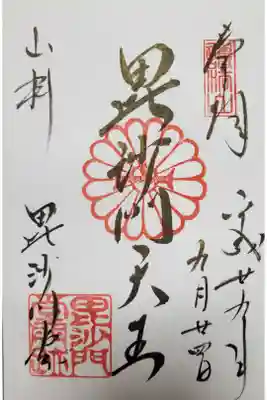 奉拝
平成廿九年
九月廿四日
毘沙門天王
山科
毘沙門堂
毘沙門